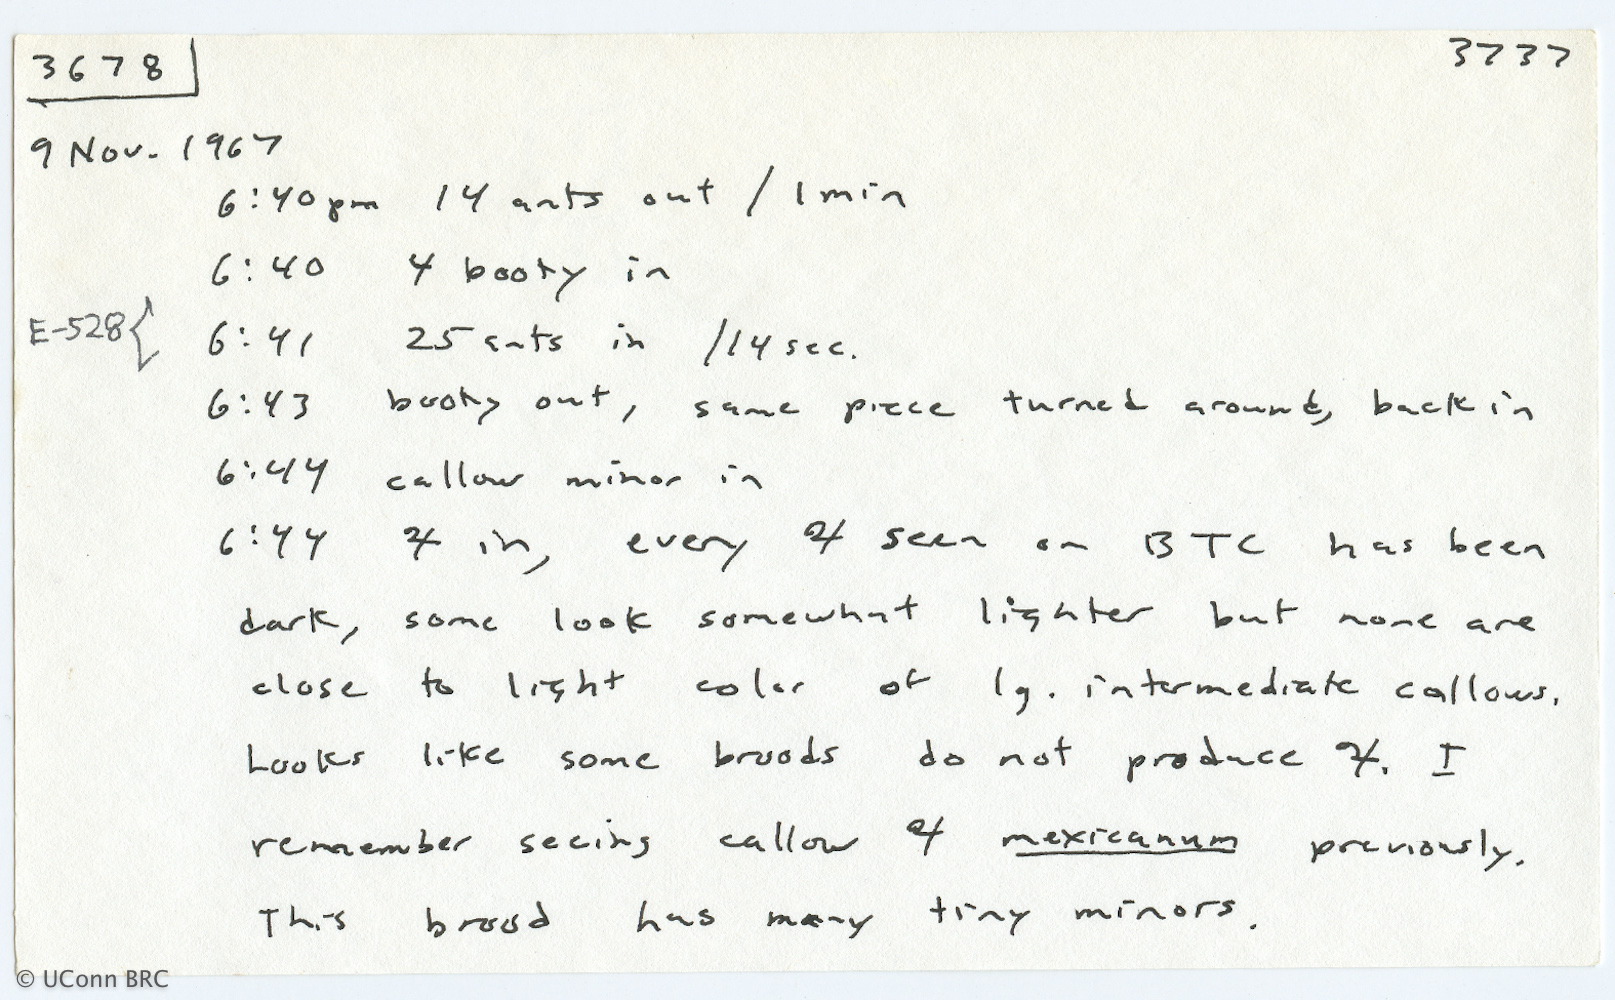 3678
3737
9 Nov. 1967
6:40pm 14 ants out / 1 min
6:40 4 booty in
E-528 { 6:41 25 ants in /14 sec.
6:43 booty out, same piece turned around, back in
6:44 callow minor in
6:44 ♃ in, every ♃ seen on BTC has been
dark, some look somewhat lighter but none are
close to light color of lg. intermediate callows.
Looks like some broods do not produce ♃. I
remember seeing callow ♃ mexicanum previously.
This brood has many tiny minors.
© UConn BRC